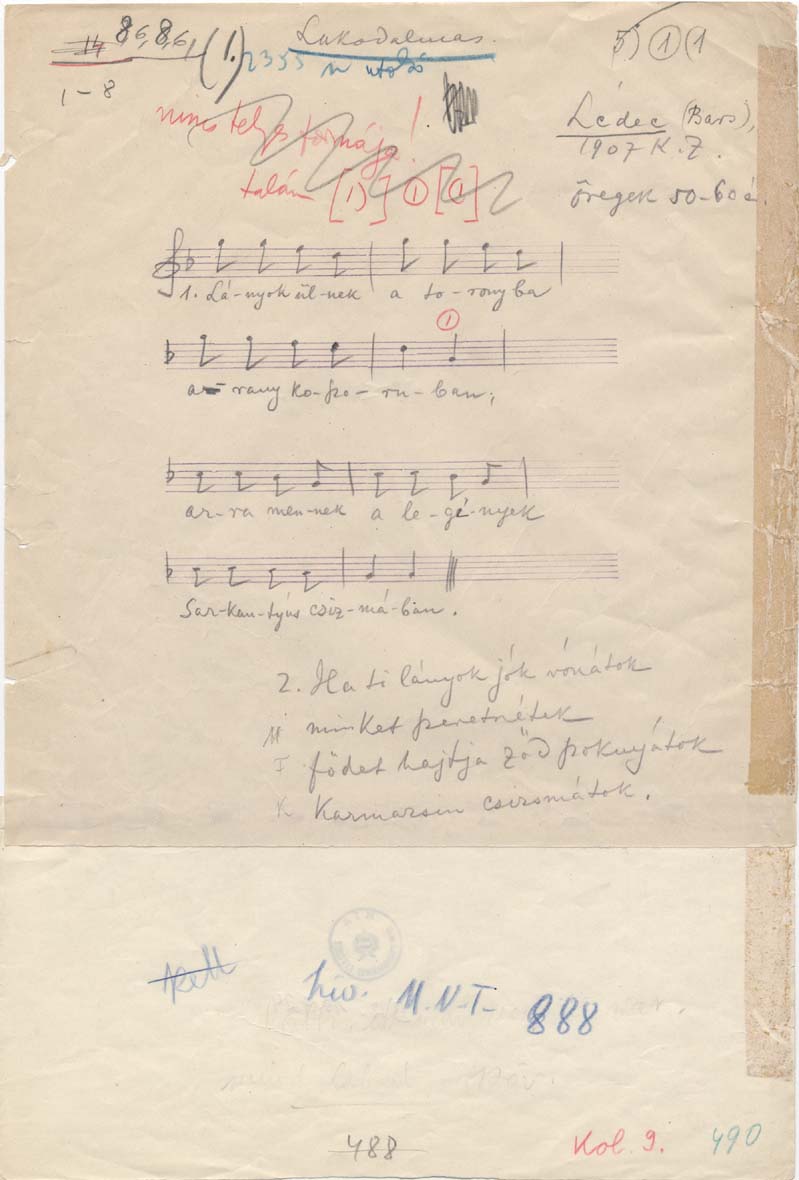 14 86,8,6, (1.) Lakodalmas. 5) ① (1
2355 u utolsó
1-8
nincs teljes formája!
talán [1)] ① [1]
Lédec (Bars),
1907 K. Z.
öregek 50-60 é.
1. Lá-nyok ül-nek a to-rony-ba
①
a-rany ko-po-ru-ban,
ar-ra men-nek a le-gé-nyek
Sar-kan-tyús csiz-má-ban.
2. Ha ti lányok jók vónátok
M minket szeretnétek
F födet hajtja ződ poknyátok
K Karmazsin csizsmátok.
hiv. M.N.T. 888
488
Kol. 9. 490